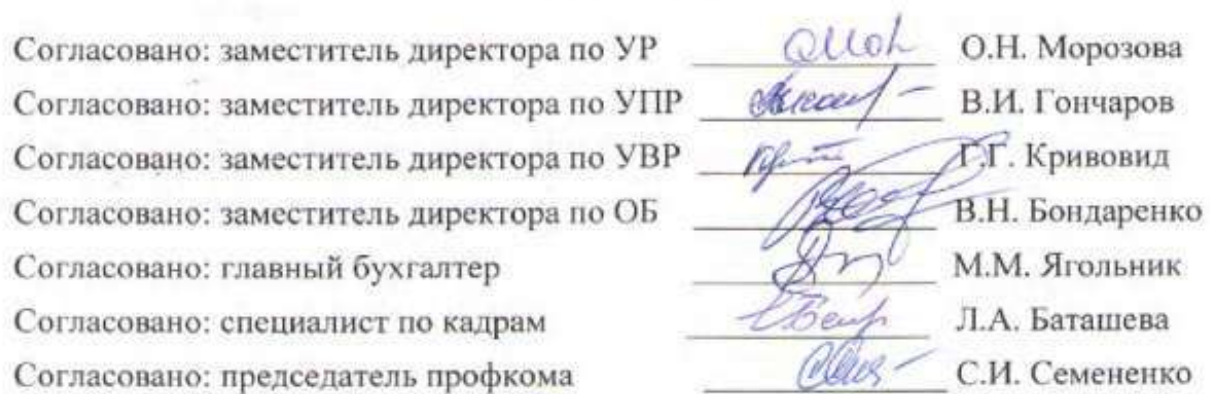 Согласовано: заместитель директора по УР О.Н. Морозова
Согласовано: заместитель директора по УПР В.И. Гончаров
Согласовано: заместитель директора по УВР Г.Г. Кривовид
Согласовано: заместитель директора по ОБ В.Н. Бондаренко
Согласовано: главный бухгалтер М.М. Ягольник
Согласовано: специалист по кадрам Л.А. Баташева
Согласовано: председатель профкома С.И. Семененко